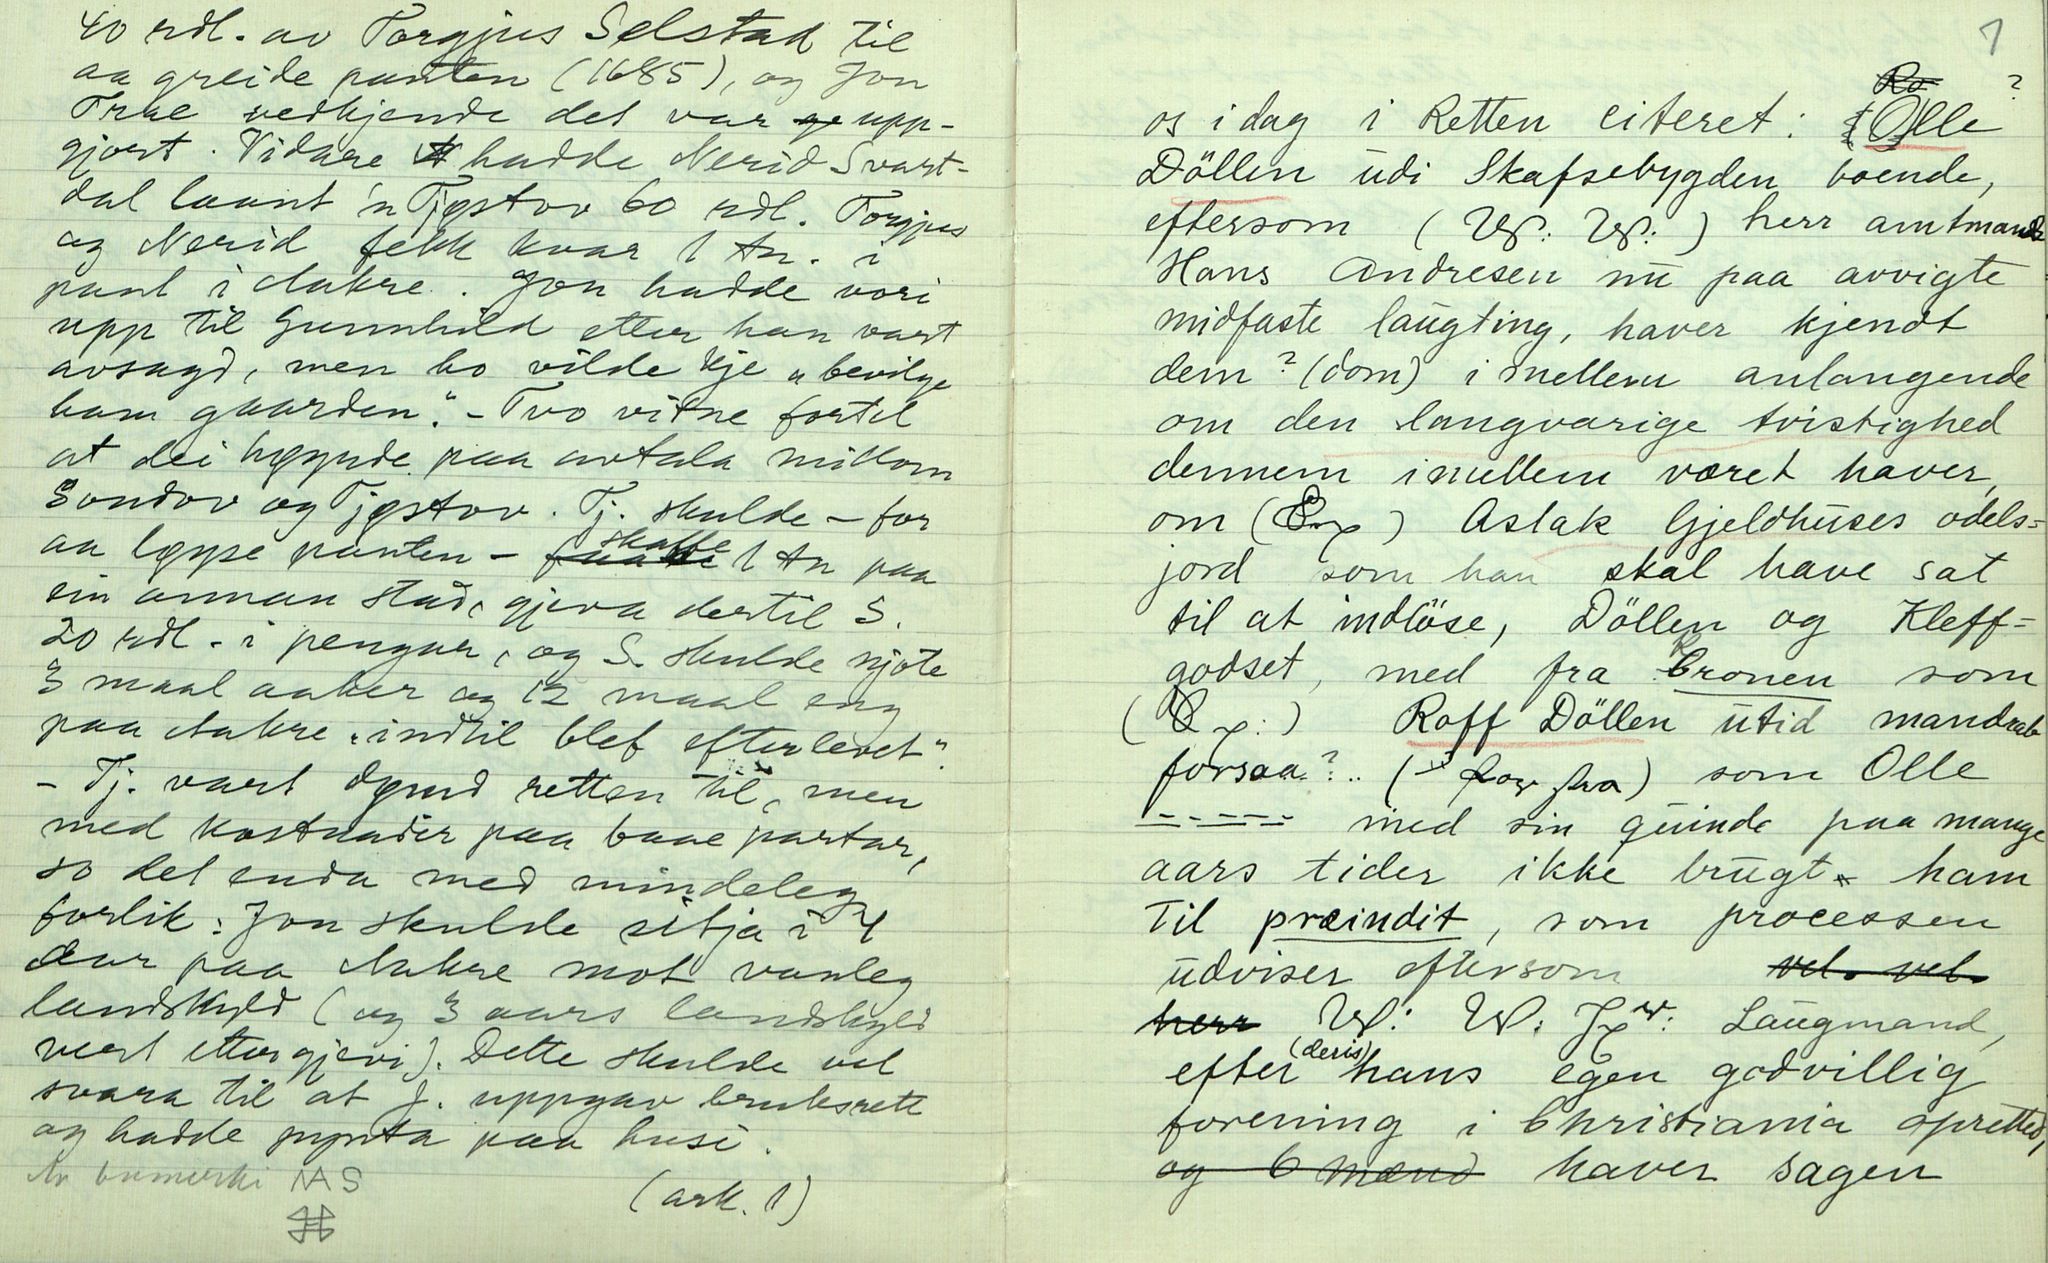 40 rdl. av Torgjus Selstad til
aa greide panten (1685), og Jon
Trae vedkjende det var upp-
gjort. Vidare hadde Nerid Svart-
dal laant 'n Tjøstov 60 rdl. Torgjus
og Nerid fekk kvar 1 tn. i
pant i Aakre. Jon hadde vori
upp til Gunnhild etter han vart
avsagd, men ho vilde kje "bevilge
ham gaarden". - Tvo vitne fortel
at dei høyrde paa avtala millom
Sondov og Tjøstov. Tj. skulde - for
aa løyse panten - skaffe 1 tn paa
ein annan stad, gjeva dertil S.
20 rdl. i pengar, og S. skulde njote
3 maal aaker og 12 maal eng
paa Aakre "indtil blef efterlevet".
- Tj. vart dømd retten til, men
med kostnader paa baae partar,
so det enda med mindeleg
forlik: Jon skulde sitja i 4
aar paa Aakre mot vanleg
landskyld (og 3 aars landskyld
vert ettergjevi). Dette skulde vel
svara til at J. uppgav bruksrett
og hadde pynta paa husi.
Av bumerki NAS
(ark. 1)
1
Ro ?
os i dag i Retten citeret: Olle
Döllen udi Skafsebygden boende,
eftersom (W: W:) herr amtmand
Hans Andresen nu paa avvigte
midfaste laugting, haver kjendt
dem? (dom) imellem anlangende
om den langvarige tvistighed
dennem imellem været haver,
om Aslak Gjeldhuses odels=
jord som han skal have sat
til at indlöse, Döllen og Kleff=
godset, med fra Cronen som
Roff Döllen utid mandrab
forsaa?.. som Olle
----- med sin quinde paa mange
aars tider ikke brugt ham
til præindit, som processen
udviser eftersom vel. vel.
herr W: W: Laugmand,
efter (deris) hans egen godvillig
forening i Christiania oprettet,
og 6 mænd haver sagen